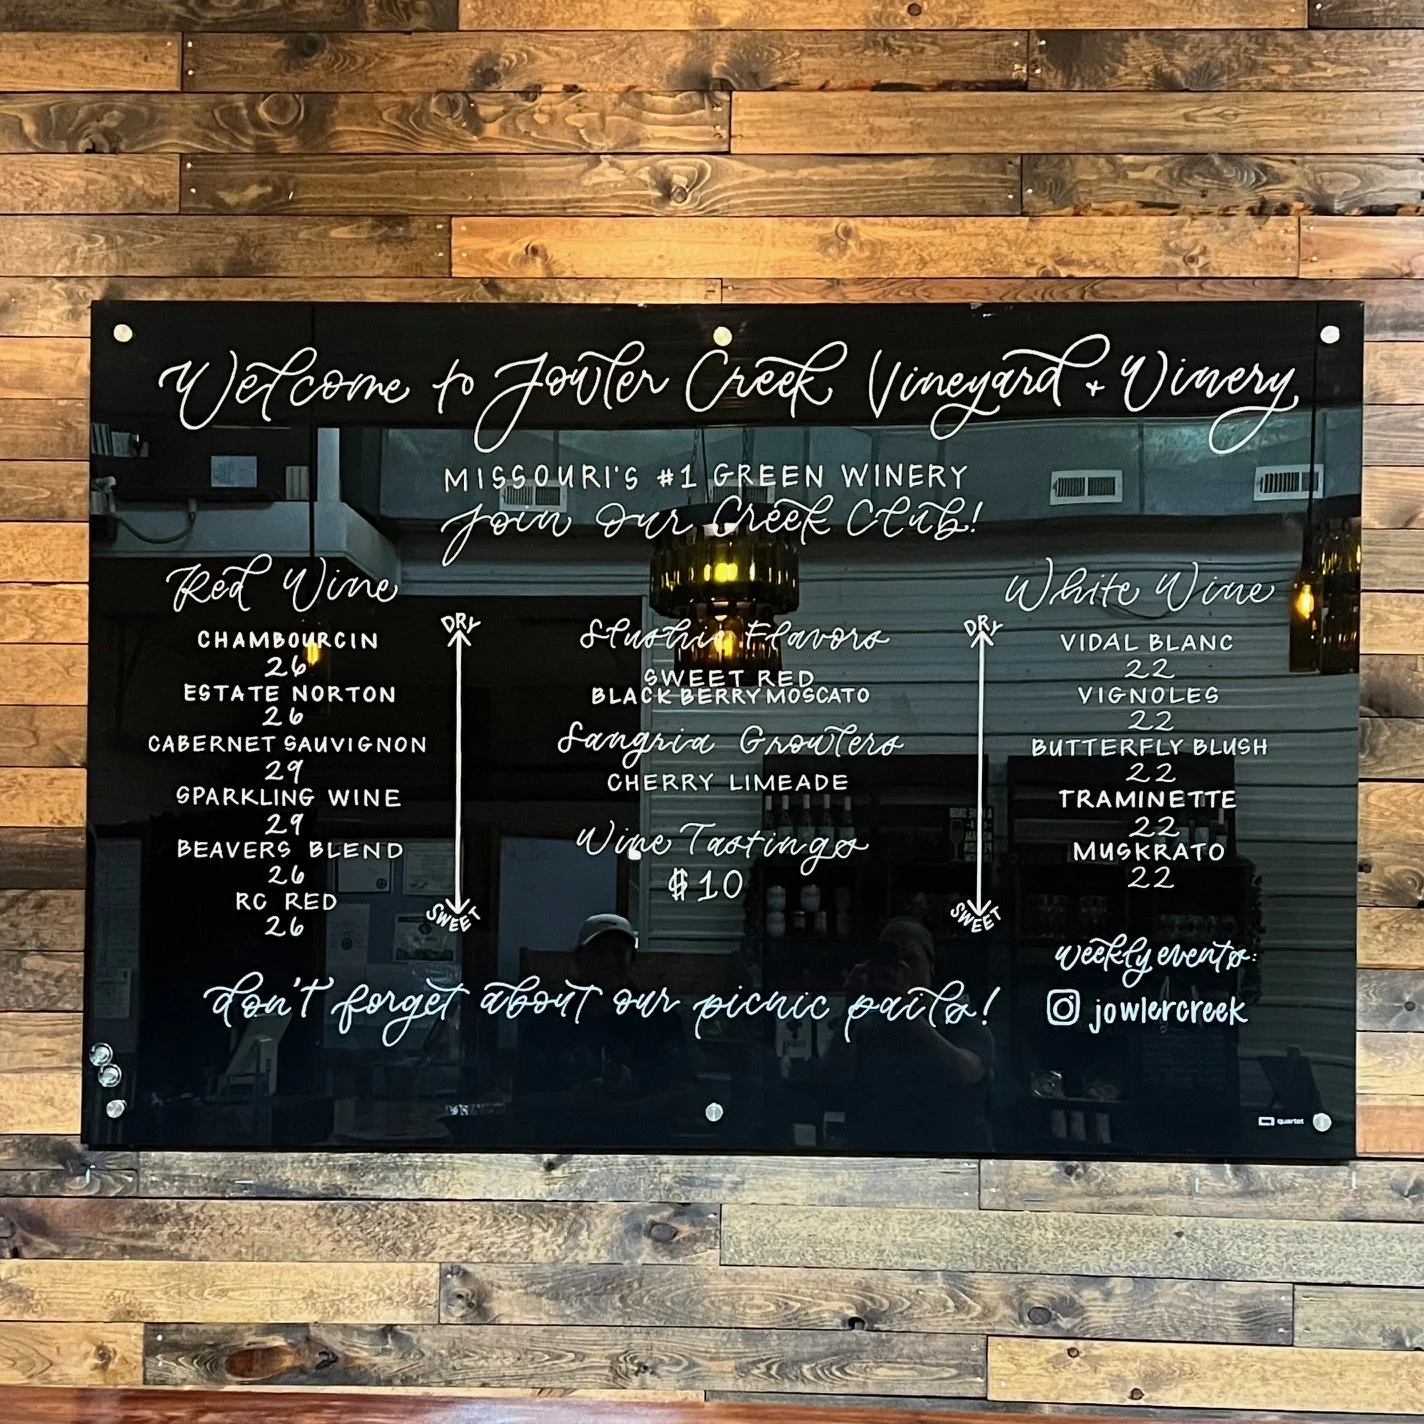 Welcome to Jowler Creek Vineyard + Winery
MISSOURI'S #1 GREEN WINERY
Join Our Creek Club!
Red Wine
DRY
CHAMBOURCIN
26
ESTATE NORTON
26
CABERNET SAUVIGNON
29
SPARKLING WINE
29
BEAVERS BLEND
26
RC RED
26
SWEET
Slushie Flavors
SWEET RED
BLACKBERRY MOSCATO
Sangria Growlers
CHERRY LIMEADE
Wine Tastings
$10
White Wine
DRY
VIDAL BLANC
22
VIGNOLES
22
BUTTERFLY BLUSH
22
TRAMINETTE
22
MUSKRATO
22
SWEET
weekly events:
jowlercreek
don't forget about our picnic pails!
quartet